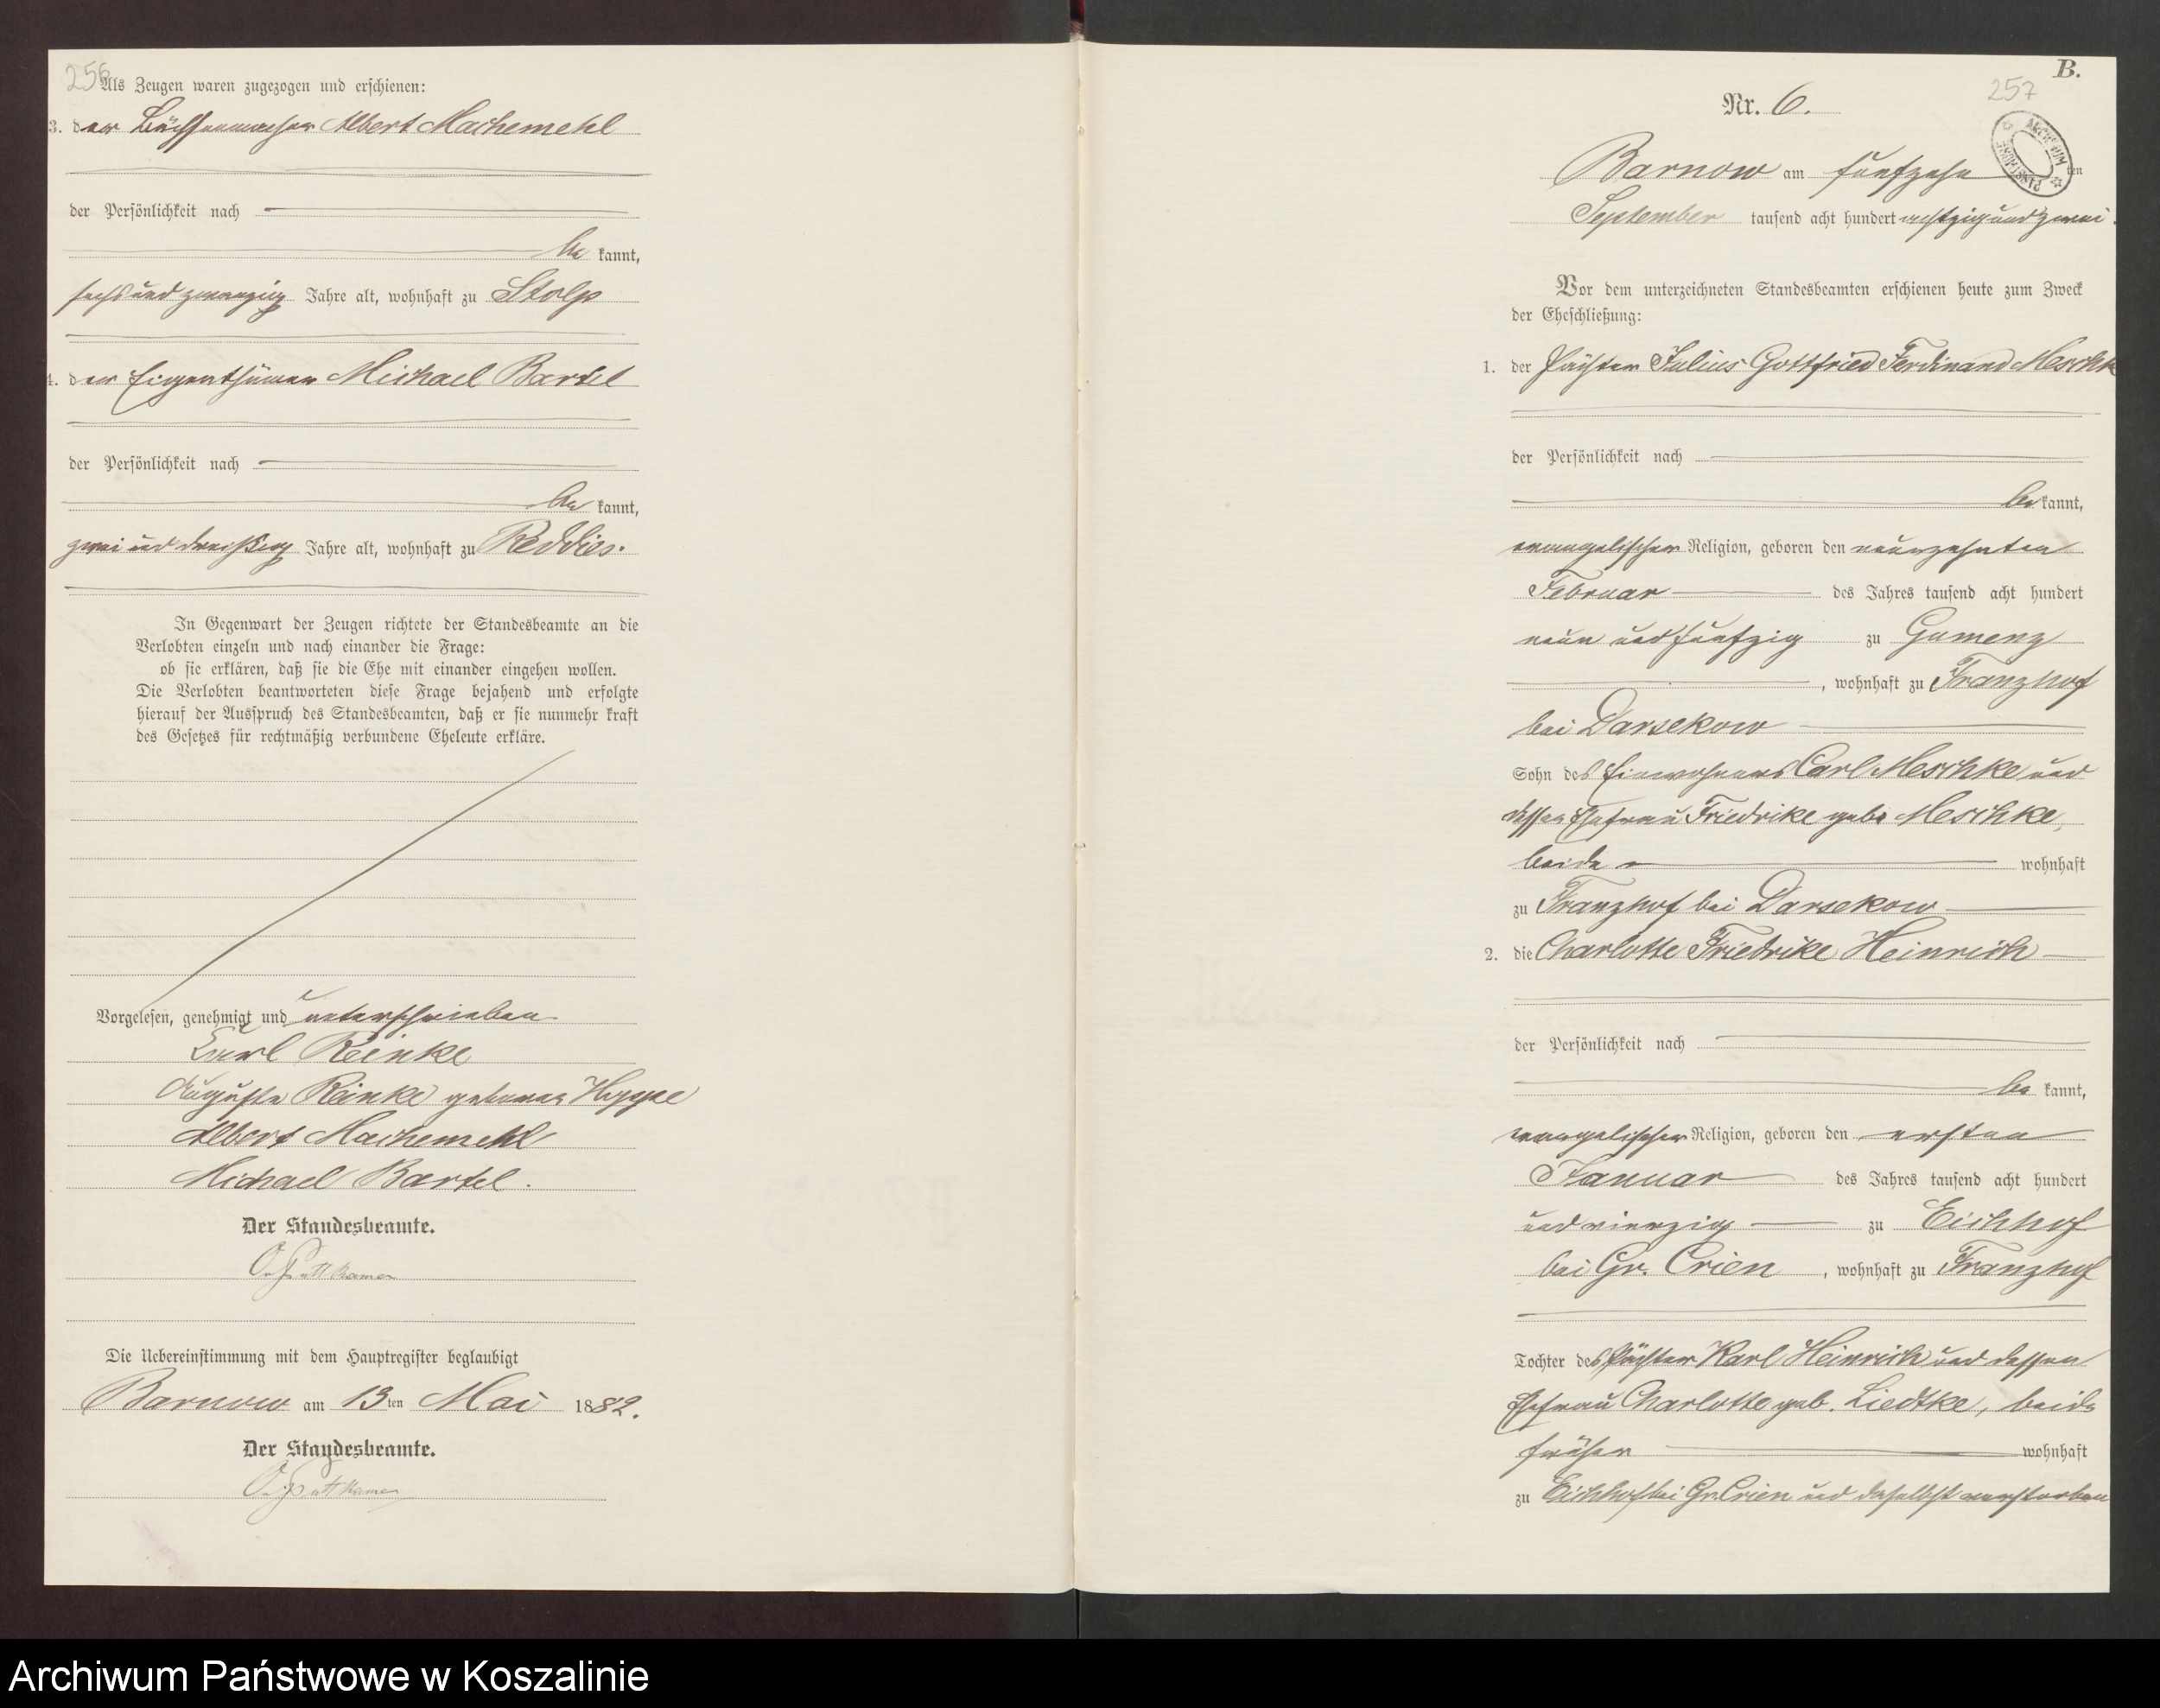 256
Als Zeugen waren zugezogen und erschienen:
3. der Büchsenmacher Albert Machemehl
der Persönlichkeit nach
be kannt,
sechs und zwanzig Jahre alt, wohnhaft zu Stolp
4. der Eigenthümer Michael Bartel
der Persönlichkeit nach
be kannt,
zwei und dreißig Jahre alt, wohnhaft zu Reddies.
In Gegenwart der Zeugen richtete der Standesbeamte an die
Verlobten einzeln und nach einander die Frage:
ob sie erklären, daß sie die Ehe mit einander eingehen wollen.
Die Verlobten beantworteten diese Frage bejahend und erfolgte
hierauf der Ausspruch des Standesbeamten, daß er sie nunmehr kraft
des Gesetzes für rechtmäßig verbundene Eheleute erkläre.
Vorgelesen, genehmigt und unterschrieben
Carl Reinke
Auguste Reinke geborene Hoppe
Albert Machemehl
Michael Bartel.
Der Standesbeamte.
O. Puttkamer
Die Uebereinstimmung mit dem Hauptregister beglaubigt
Barnow am 13ten Mai 1882.
Der Standesbeamte.
O. Puttkamer
B.
257
Nr. 6.
ARCHIWUM PAŃSTWOWE
Barnow am fünfzehn ten
September tausend acht hundert achtzig und zwei.
Vor dem unterzeichneten Standesbeamten erschienen heute zum Zweck
der Eheschließung:
1. der Pächter Julius Gottfried Ferdinand Meschke
der Persönlichkeit nach
be kannt,
evangelischer Religion, geboren den neunzehnten
Februar des Jahres tausend acht hundert
neun und fünfzig zu Gumenz
, wohnhaft zu Franzhof
bei Darsekow
Sohn des Einwohners Carl Meschke und
dessen Ehefrau Friedrike geb. Meschke,
beide wohnhaft
zu Franzhof bei Darsekow
2. die Charlotte Friedrike Heinrich
der Persönlichkeit nach
be kannt,
evangelischer Religion, geboren den ersten
Januar des Jahres tausend acht hundert
und vierzig zu Eichhof
bei Gr. Crien , wohnhaft zu Franzhof
Tochter des Pächter Karl Heinrich und dessen
Ehefrau Charlotte geb. Liedtke, beide
früher wohnhaft
zu Eichhof bei Gr. Crien und daselbst verstorben
Archiwum Państwowe w Koszalinie